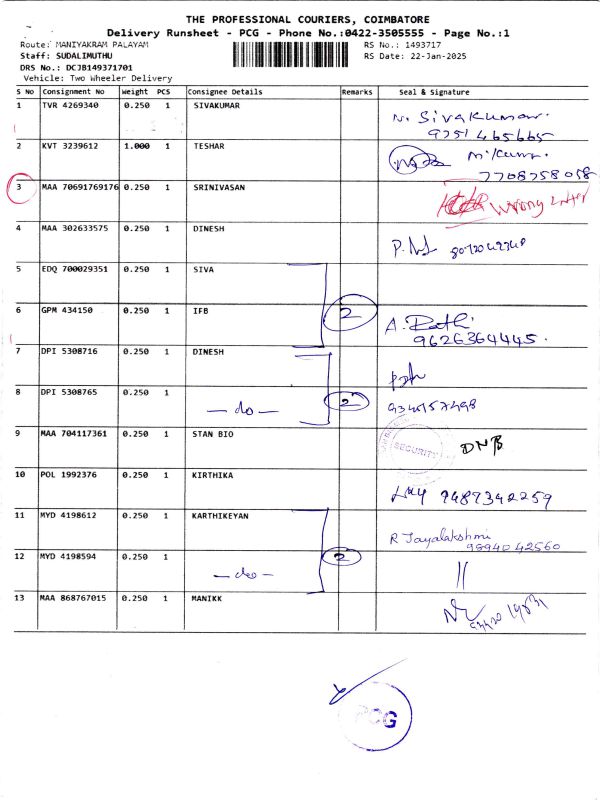 THE PROFESSIONAL COURIERS, COIMBATORE
Delivery Runsheet - PCG - Phone No.:0422-3505555 - Page No.:1
Route: MANIYAKRAM PALAYAM
RS No.: 1493717
Staff: SUDALIMUTHU
RS Date: 22-Jan-2025
DRS No.: DCJB149371701
Vehicle: Two Wheeler Delivery
S No Consignment No Weight PCS Consignee Details Remarks Seal & Signature
1 TVR 4269340 0.250 1 SIVAKUMAR N. SIVAKUMAR.
9751 465665
2 KVT 3239612 1.000 1 TESHAR M.Kumar.
7708758058
3 MAA 70691769176 0.250 1 SRINIVASAN Wrong Letter
4 MAA 302633575 0.250 1 DINESH
5 EDQ 700029351 0.250 1 SIVA
6 GPM 434150 0.250 1 IFB 2 A. Rathi
9626364445.
7 DPI 5308716 0.250 1 DINESH
8 DPI 5308765 0.250 1 - do - 2
9 MAA 704117361 0.250 1 STAN BIO SECURITY DNB
10 POL 1992376 0.250 1 KIRTHIKA 9487342259
11 MYD 4198612 0.250 1 KARTHIKEYAN R Jayalakshmi
98940 42560
12 MYD 4198594 0.250 1 - do - 2 "
13 MAA 868767015 0.250 1 MANIKK
PCG